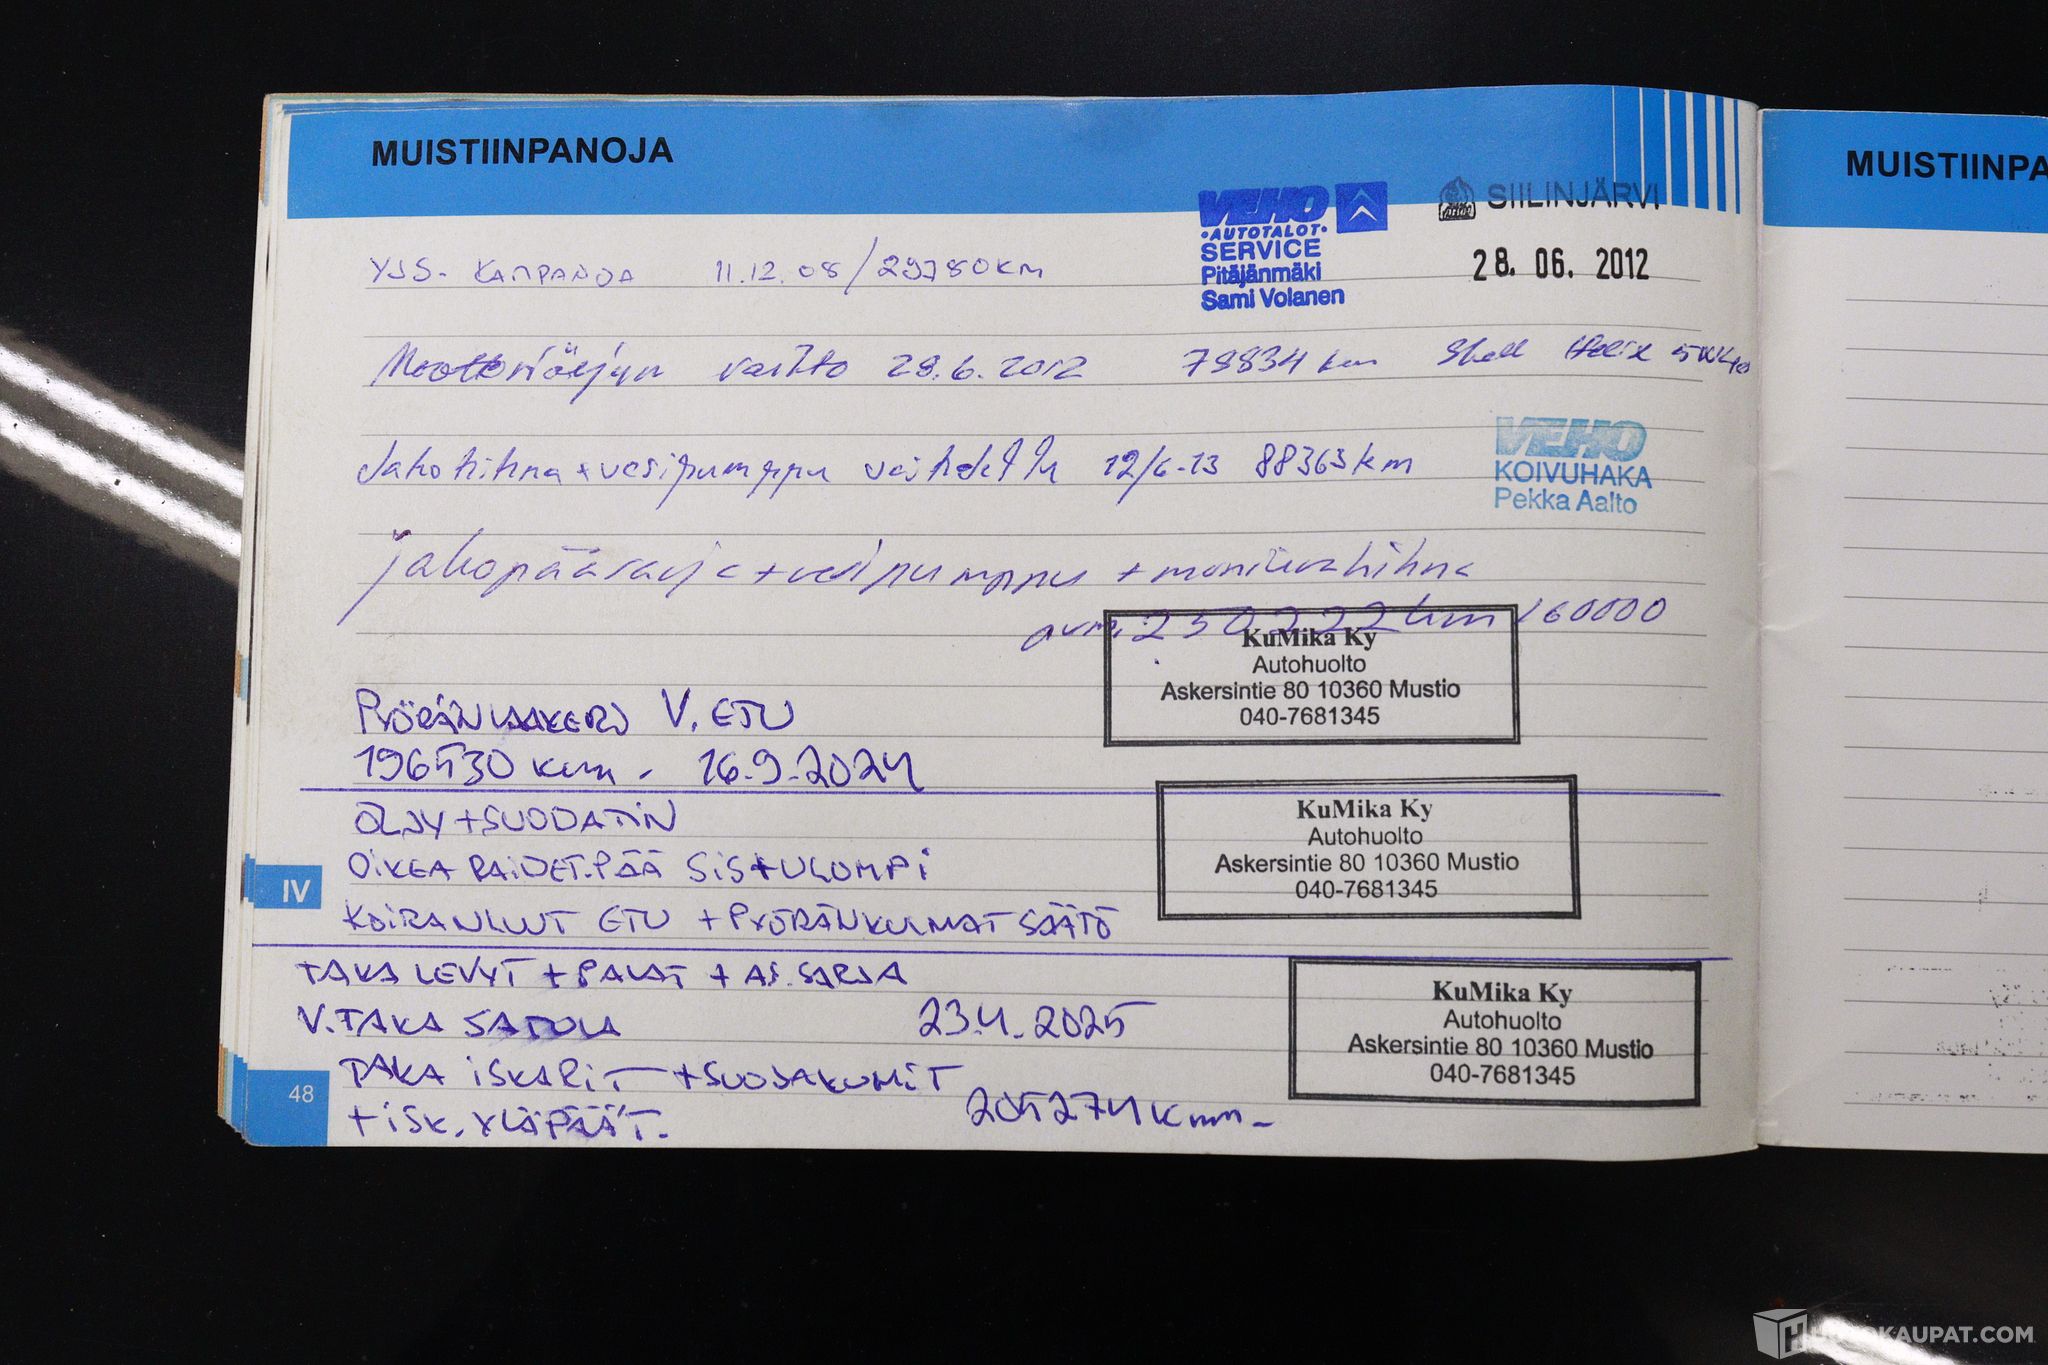 MUISTIINPANOJA
MUISTIINPA
VEHO
·AUTOTALOT·
SERVICE
Pitäjänmäki
Sami Volanen
SIILINJÄRVI
28. 06. 2012
KAMPANJA 11.12.08/29780KM
Moottoriöljyn vaihto 28.6.2012 79834 km Shell Helix 5W40
Jakohihna + vesipumppu vaihdettu 12/6-13 88363km
VEHO
KOIVUHAKA
Pekka Aalto
jakopääsarja + vesipumppu + moniurahihna
km 160000
KuMika Ky
Autohuolto
Askersintie 80 10360 Mustio
040-7681345
PYÖRÄNLAAKERI V. ETU
196530 km - 16.9.2024
ÖLJY + SUODATIN
OIKEA RAIDET.PÄÄ SIS+ULOMPI
KOIRANLUUT ETU + PYÖRÄNKULMAT SÄÄTÖ
KuMika Ky
Autohuolto
Askersintie 80 10360 Mustio
040-7681345
IV
TAKA LEVYT + PALAT + AS.SARJA
V.TAKA SATULA 23.4.2025
TAKA ISKARIT + SUOJAKUMIT
+ ISK. YLÄPÄÄT. 205274 Km-
KuMika Ky
Autohuolto
Askersintie 80 10360 Mustio
040-7681345
48
KAUPAT.COM